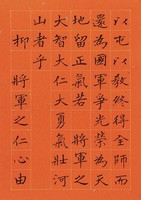 以屯以教終得全師而
還為國軍爭光榮為天
地留正氣若 將軍
大智大仁大勇氣壯河
山者乎
抑 將軍之仁心由